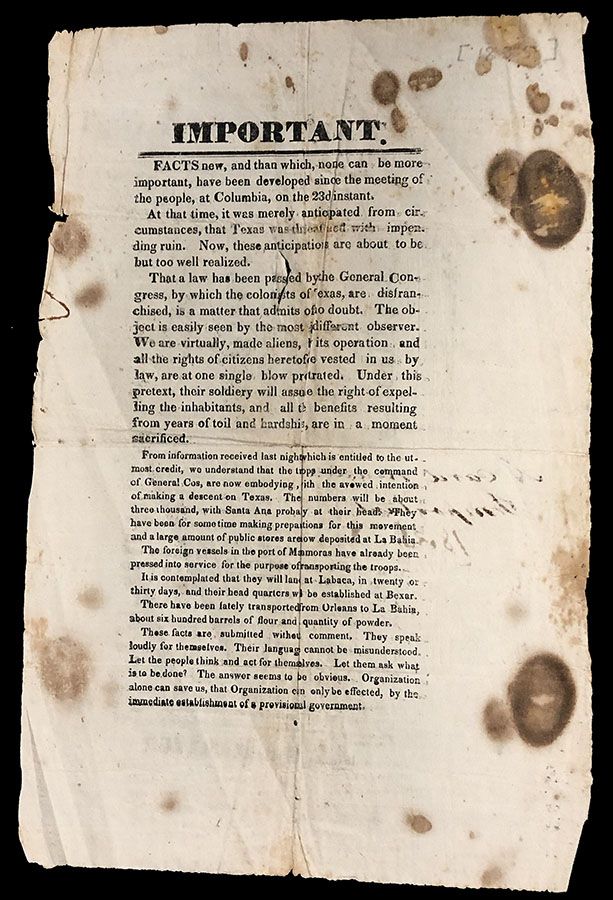 [18 ]
IMPORTANT.
FACTS new, and than which, none can be more
important, have been developed since the meeting of
the people, at Columbia, on the 23d instant.
At that time, it was merely anticpated from cir-
cumstances, that Texas was with impen-
ding ruin. Now, these anticipations are about to be
but too well realized.
That a law has been passed by the General Con-
gress, by which the colonists of Texas, are disfran-
chised, is a matter that admits of no doubt. The ob-
ject is easily seen by the most different observer.
We are virtually, made aliens, its operation and
all the rights of citizens heretofore vested in us by
law, are at one single blow prostrated. Under this
pretext, their soldiery will assume the right of expel-
ling the inhabitants, and all the benefits resulting
from years of toil and hardship, are in a moment
sacrificed.
From information received last night which is entitled to the ut-
most credit, we understand that the troops under the command
of General Cos, are now embodying, with the avowed intention
of making a descent on Texas. The numbers will be about
three thousand, with Santa Ana probably at their head. They
have been for some time making preparations for this movement
and a large amount of public stores are now deposited at La Bahia.
The foreign vessels in the port of Matamoras have already been
pressed into service for the purpose of transporting the troops.
It is contemplated that they will land at Labaca, in twenty or
thirty days, and their head quarters will be established at Bexar.
There have been lately transported from Orleans to La Bahia,
about six hundred barrels of flour and quantity of powder.
These facts are, submitted without comment. They speak
loudly for themselves. Their language cannot be misunderstood.
Let the people think and act for themselves. Let them ask what
is to be done? The answer seems to be obvious. Organization
alone can save us, that Organization can only be effected, by the
immediate establishment of a provisional government.